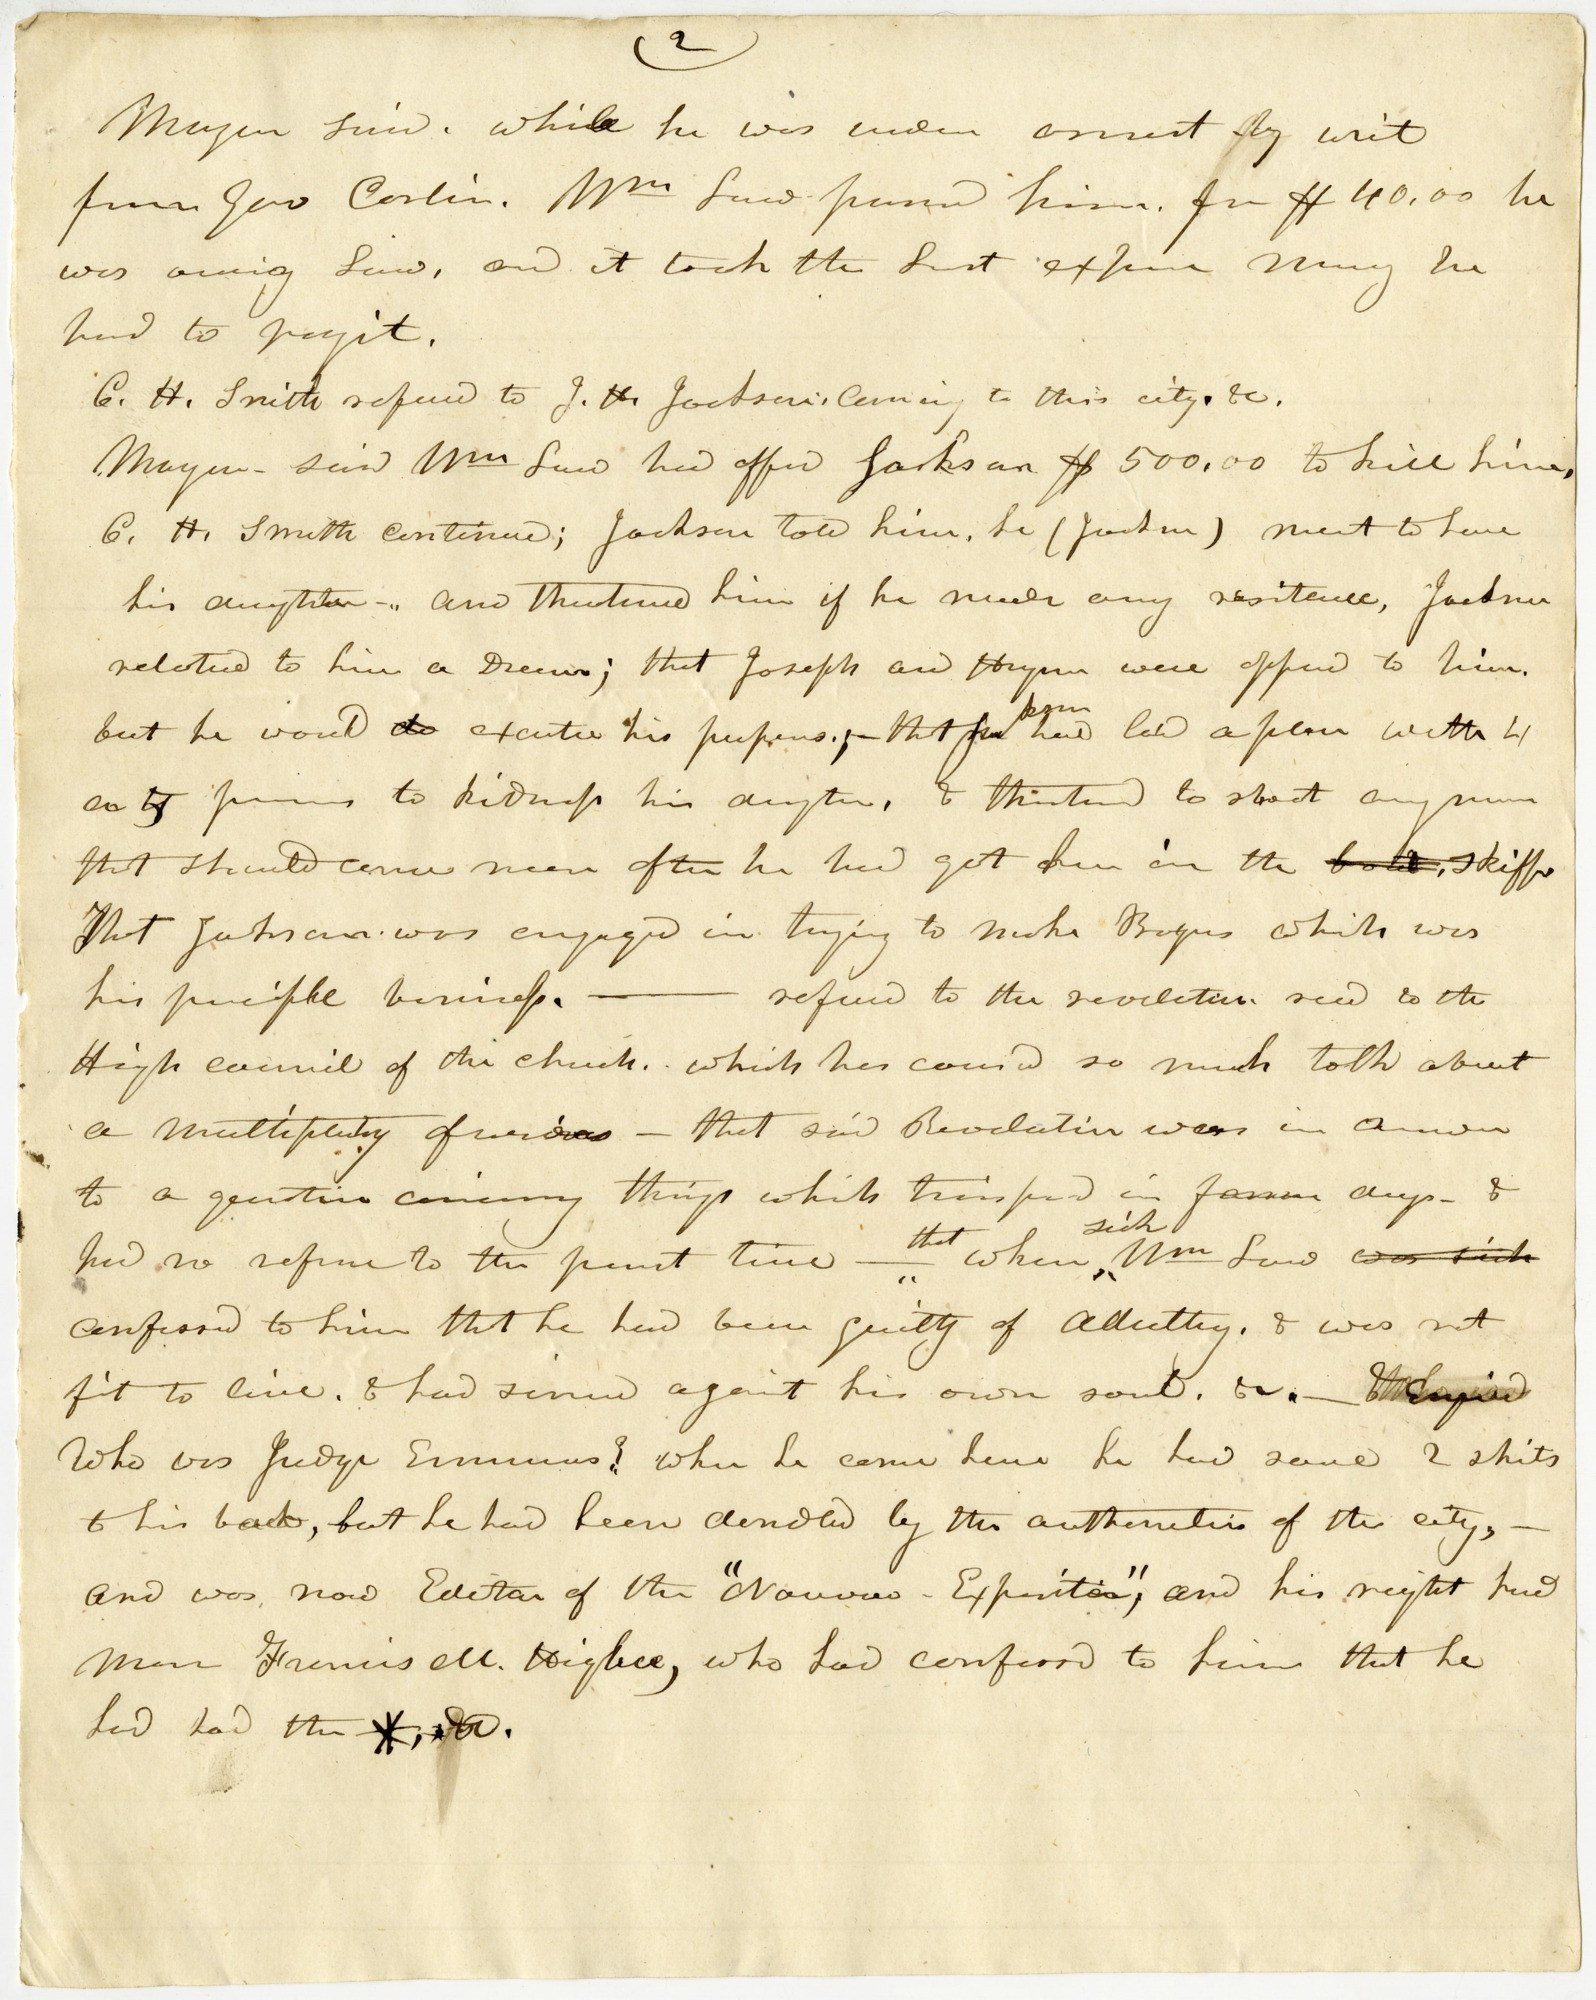 (2)
Mayor said, while he was under arrest by writ
from Gov Carlin. Wm Law pursued him. for $40.00 he
was owing Law, and it took the last expense money he
had to pay it.
C. H. Smith referred to J. H. Jackson. coming to this city. &c.
Mayor— said Wm Law had offered Jackson $500.00 to kill him,
C. H. Smith continued; Jackson told him, he (Jackson) meant to have
his daughter—„ and threatened him if he made any resitence, Jackson
related to him a Dream; that Joseph and Hyrum were opposed to him.
but he would do execute his purposes.;— that Jackson had laid a plan with 4
or 5 persons to kidnap his daughter, & threatened to shoot any man
that should come near after he had got her in the boat, skiff.
That Jackson was engaged in trying to make Bogus which was
his principle business. —— referred to the revelation read to the
High council of the church. which has caused so much talk about
a multiplicity of wives — that said Revelation was in answer
to a question concerning things which transpired in former days— &
had no reference to the present time — that when sick Wm Law was sick
confessed to him that he had been guilty of Adultery, & was not
fit to live. & had sinned against his own soul. &c.—
Who was Judge Emmons? when he came here he had scarce 2 shirts
to his back, but he had been dandled by the authorities of the city,—
and was now Editor of the "Nauvoo-Expositor"; and his right hand
man Francis M. Higbee, who had confessed to him that he
had had the *, &c.